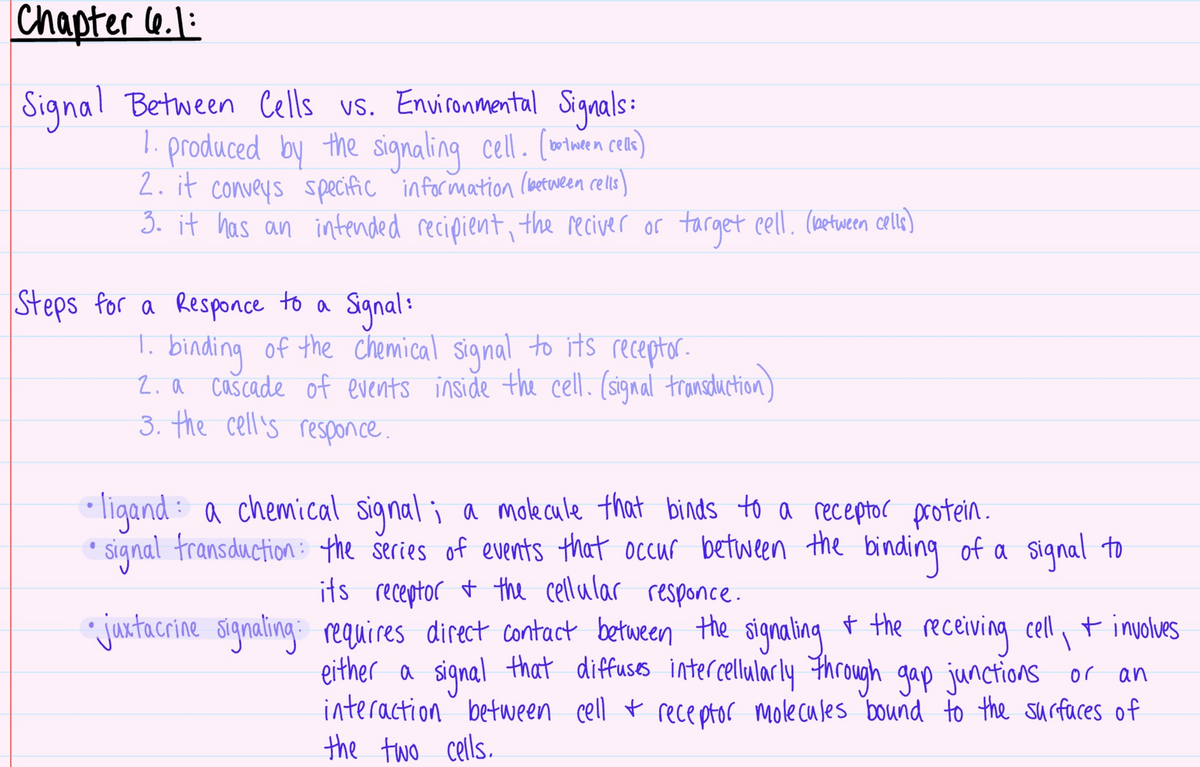 Chapter 6.1:
Signal Between Cells vs. Environmental Signals:
1. produced by the signaling cell. (between cells)
2. it conveys specific information (between cells)
3. it has an intended recipient, the reciver or target cell. (between cells)
Steps for a Responce to a Signal:
1. binding of the chemical signal to its receptor.
2. a cascade of events inside the cell. (signal transduction)
3. the cell's responce.
• ligand: a chemical signal; a molecule that binds to a receptor protein.
• signal transduction: the series of events that occur between the binding of a signal to
its receptor & the cellular responce.
• juxtacrine signaling: requires direct contact between the signaling & the receiving cell, & involves
either a signal that diffuses intercellularly through gap junctions or an
interaction between cell & receptor molecules bound to the surfaces of
the two cells.